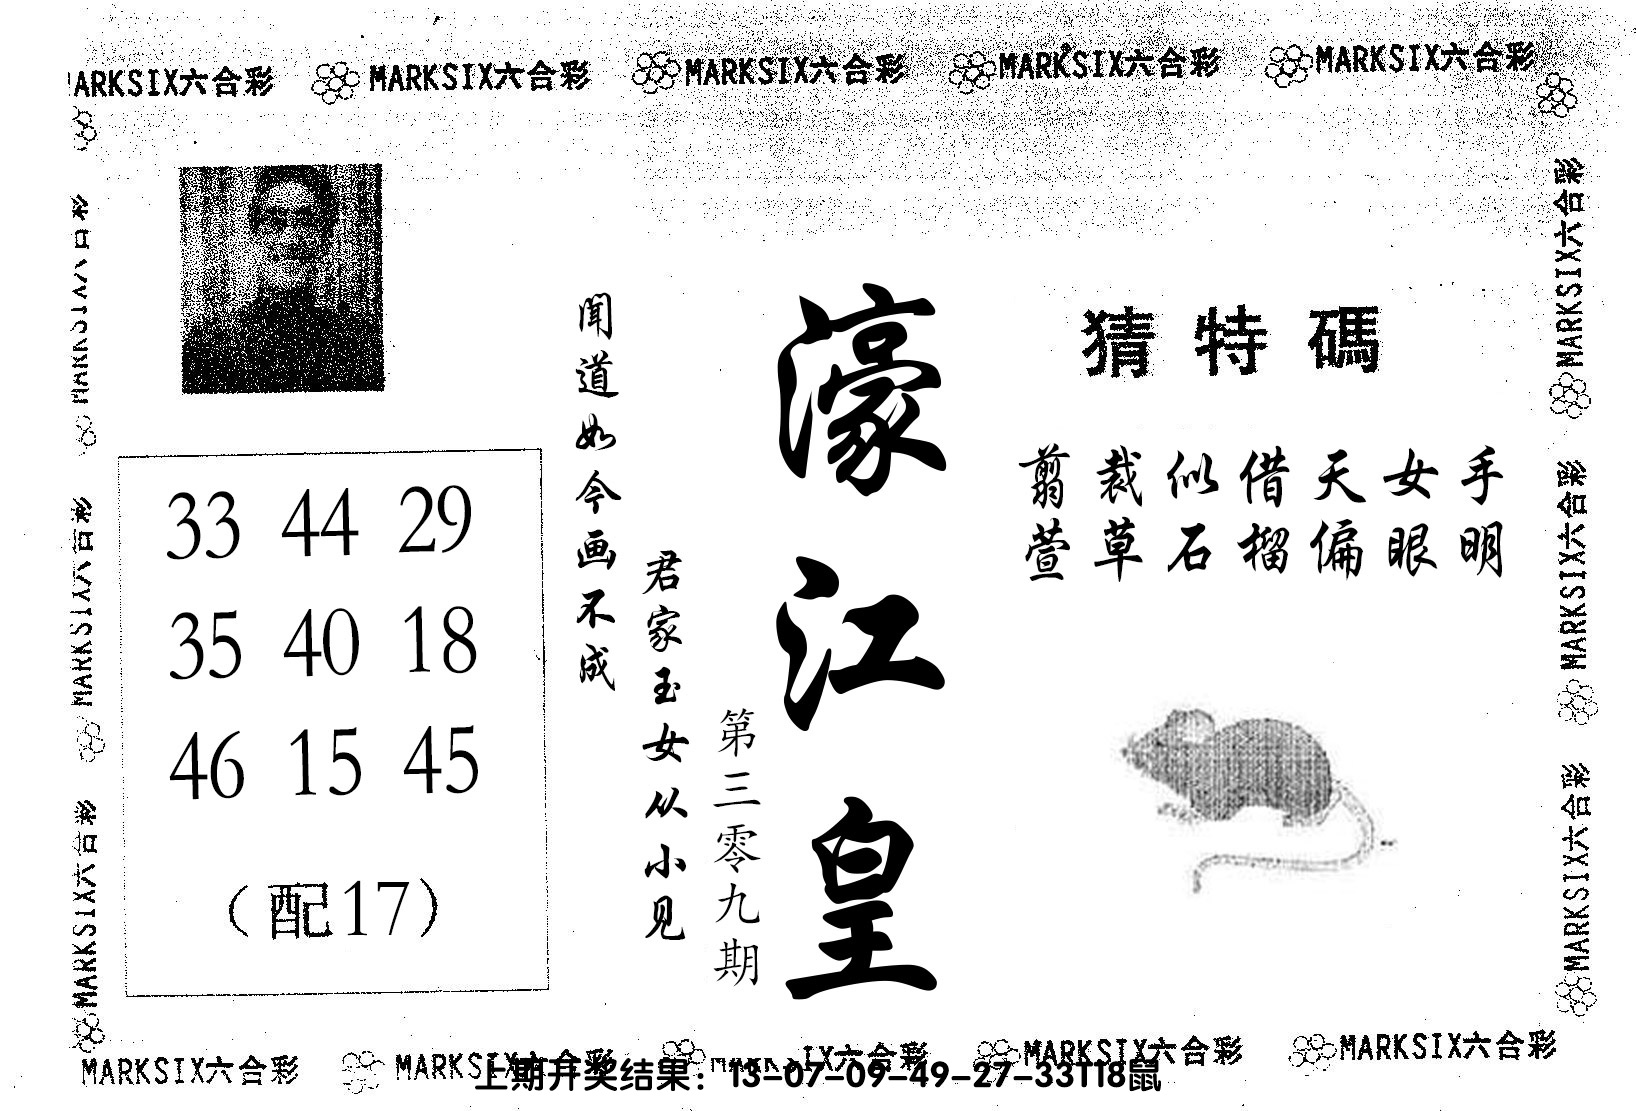 MARKSIX六合彩 MARKSIX六合彩 MARKSIX六合彩 MARKSIX六合彩 MARKSIX六合彩
猜特碼
剪裁似借天女手
萱草石榴偏眼明
濠江皇
第三零九期
君家玉女从小见
闻道如今画不成
33 44 29
35 40 18
46 15 45
（配17）
MARKSIX六合彩
MARKSIX六合彩
MARKSIX六合彩
MARKSIX六合彩
MARKSIX六合彩
MARKSIX六合彩
MARKSIX六合彩 MARKSIX六合彩 MARKSIX六合彩 MARKSIX六合彩
上期开奖结果：13-07-09-49-27-33T18鼠